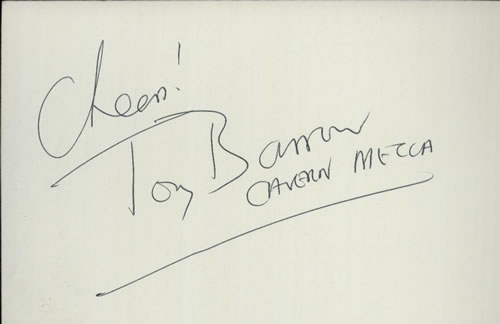 Cheers!
Tony Barrow
CAVERN MECCA